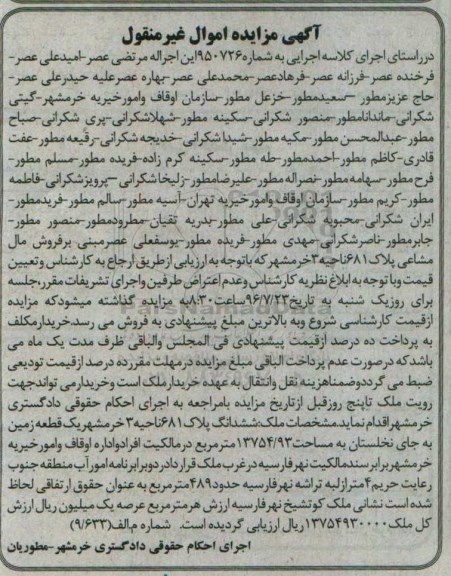 آگهی مزایده اموال غیر منقول
درراستای اجرای کلاسه اجرایی به شماره ۹۵۰۷۲۶این اجراله مرتضی عصر-امیدعلی عصر-
فرخنده عصر-فرزانه عصر-فرهادعصر-محمدعلی عصر-بهاره عصرعلیه حیدرعلی عصر-
حاج عزیزمطور –سعیدمطور-خزعل مطور-سازمان اوقاف وامورخیریه خرمشهر-گیتی
شکرانی-ماندانامطور-منصور شکرانی-سکینه مطور-شهلاشکرانی-پری شکرانی-صباح
مطور-عبدالمحسن مطور-مکیه مطور-شیدا شکرانی-خدیجه شکرانی-رفیعه مطور-عفت
قادری-کاظم مطور-احمدمطور-طه مطور-سکینه کرم زاده-فریده مطور-مسلم مطور-
فرح مطور-سهامه مطور-نصراله مطور-علیرضامطور-زلیخاشکرانی –پرویزشکرانی-فاطمه
مطور-کریم مطور-سازمان اوقاف وامورخیریه تهران-آسیه مطور-سالم مطور-فریدمطور-
ایران شکرانی-محبوبه شکرانی-علی مطور-بدریه تقیان-مطرودمطور-منصور مطور-
جابرمطور-ناصرشکرانی-مهدی مطور-فریده مطور-یوسفعلی عصرمبنی برفروش مال
مشاعی پلاک ۶۸۱ناحیه۳خرمشهر که باتوجه به ارزیابی ازطریق ارجاع به کارشناس وتعیین
قیمت وبا توجه به ابلاغ نظریه کارشناس وعدم اعتراض طرفین واجرای تشریفات مقرر،جلسه
برای روزیک شنبه به تاریخ۹۶/۷/۲۳ساعت۸:۳۰به مزایده گذاشته میشودکه مزایده
ازقیمت کارشناسی شروع وبه بالاترین مبلغ پیشنهادی به فروش می رسد.خریدارمکلف
به پرداخت ده درصد ازقیمت پیشنهادی فی المجلس والباقی ظرف مدت یک ماه می
باشدکه درصورت عدم پرداخت الباقی مبلغ مزایده درمهلت مقررده درصد ازقیمت تودیعی
ضبط می گرددوضمناهزینه نقل وانتقال به عهده خریدارملک است وخریدارمی تواندجهت
رویت ملک تاپنج روزقبل ازتاریخ مزایده بامراجعه به اجرای احکام حقوقی دادگستری
خرمشهراقدام نماید.مشخصات ملک:ششدانگ پلاک ۶۸۱ناحیه۳خرمشهریک قطعه زمین
به جای نخلستان به مساحت۱۳۷۵۴/۹۳مترمربع درمالکیت افرادواداره اوقاف وامورخیریه
خرمشهربرابرسندمالکیت نهرفارسیه درغرب ملک قراردارددوبرابرنامه امورآب منطقه جنوب
رعایت حریم۴مترازلبه تراشه نهرفارسیه حدود۴۸۹مترمربع به عنوان حقوق ارتفاقی لحاظ
شده است نشانی ملک کوتشیخ نهرفارسیه ارزش هرمترمربع عرصه یک میلیون ریال ارزش
کل ملک۱۳۷۵۴۹۳۰۰۰۰ریال ارزیابی گردیده است. شماره م.الف(۹/۶۳۳)
اجرای احکام حقوقی دادگستری خرمشهر-مطوریان